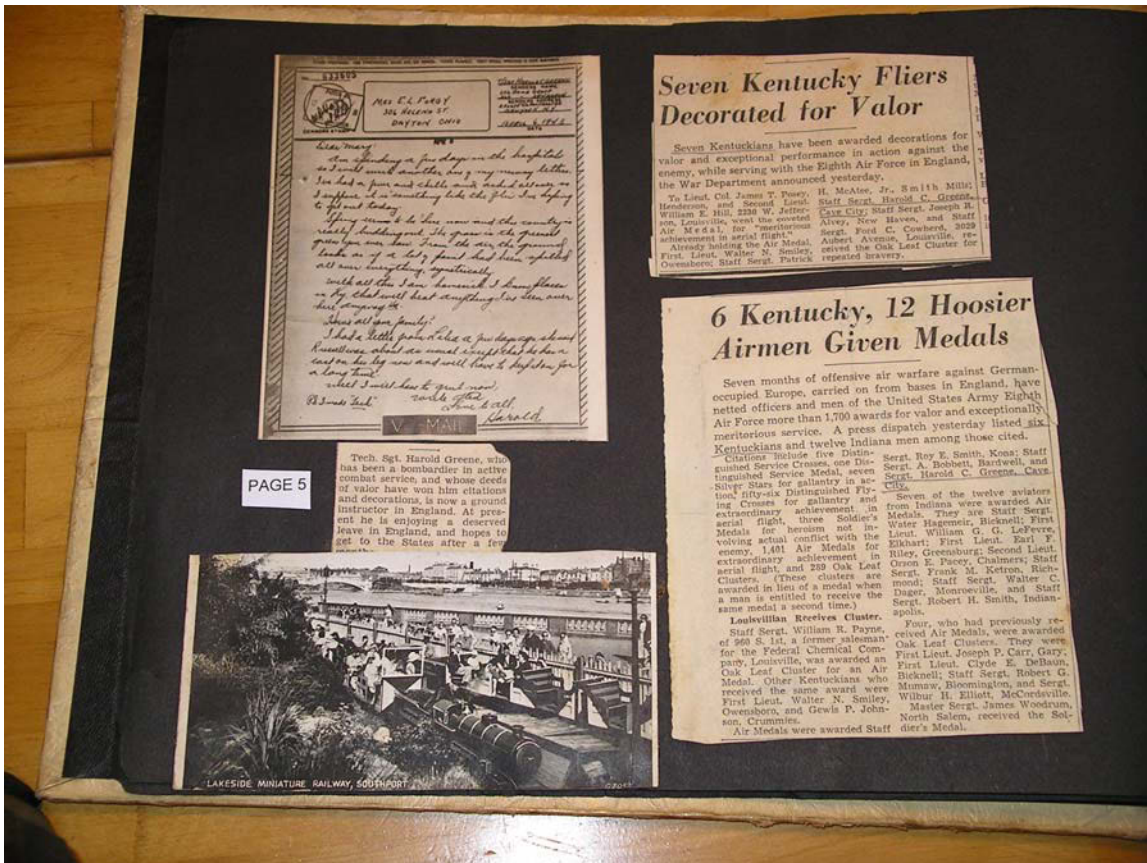 533605
MRS E.L. FORDY
306 HELENA ST.
DAYTON OHIO
DATE
Dear Mary:
Am spending a few days in the hospital
so I will write another one of my newsy letters.
I've had a fever and chills and ached all over so
I suppose it is something like the flu. I'm hoping
to get out today.
Spring seems to be here now and the country is
really budding out. The grass is the greenest
green you ever saw. From the air the ground
looks as if a lot of paint had been spilled
all over everything,
with all this I am homesick. I know places
in Ky. that will beat anything I've seen over
here anyway
How's all your family?
I had a letter from a few days ago she said
Russell was about as usual except that he has a
cast on his leg now and will have to keep it on for
a long time.
Well I will have to quit now.
Love to all,
Harold
V - MAIL
Seven Kentucky Fliers
Decorated for Valor
Seven Kentuckians have been awarded decorations for
valor and exceptional performance in action against the
enemy, while serving with the Eighth Air Force in England,
the War Department announced yesterday.
To Lieut. Col. James T. Posey,
Henderson, and Second Lieut.
William E. Hill, 2230 W. Jeffer-
son, Louisville, went the coveted
Air Medal, for "meritorious
achievement in aerial flight."
Already holding the Air Medal,
First. Lieut. Walter N. Smiley,
Owensboro; Staff Sergt. Patrick
H. McAtee, Jr., Smith Mills;
Staff Sergt. Harold C. Greene,
Cave City; Staff Sergt. Joseph R.
Alvey, New Haven, and Staff
Sergt. Ford C. Cowherd, 3029
Aubert Avenue, Louisville, re-
ceived the Oak Leaf Cluster for
repeated bravery.
6 Kentucky, 12 Hoosier
Airmen Given Medals
Seven months of offensive air warfare against German-
occupied Europe, carried on from bases in England, have
netted officers and men of the United States Army Eighth
Air Force more than 1,700 awards for valor and exceptionally
meritorious service. A press dispatch yesterday listed six
Kentuckians and twelve Indiana men among those cited.
Citations include five Distin-
guished Service Crosses, one Dis-
tinguished Service Medal, seven
Silver Stars for gallantry in ac-
tion, fifty-six Distinguished Fly-
ing Crosses for gallantry and
extraordinary achievement in
aerial flight, three Soldier's
Medals for heroism not in-
volving actual conflict with the
enemy, 1,401 Air Medals for
extraordinary achievement in
aerial flight, and 269 Oak Leaf
Clusters. (These clusters are
awarded in lieu of a medal when
a man is entitled to receive the
same medal a second time.)
Louisvillian Receives Cluster.
Staff Sergt. William R. Payne,
of 960 S. 1st, a former salesman
for the Federal Chemical Com-
pany, Louisville, was awarded an
Oak Leaf Cluster for an Air
Medal. Other Kentuckians who
received the same award were
First Lieut. Walter N. Smiley,
Owensboro, and Gewis P. John-
son, Crummies.
Air Medals were awarded Staff
Sergt. Roy E. Smith, Kona; Staff
Sergt. A. Bobbett, Bardwell, and
Sergt. Harold C. Greene, Cave
City.
Seven of the twelve aviators
from Indiana were awarded Air
Medals. They are Staff Sergt.
Water Hagemeir, Bicknell; First
Lieut. William G. G. LeFevre,
Elkhart; First Lieut. Earl F.
Riley, Greensburg; Second Lieut.
Orson E. Pacey, Chalmers; Staff
Sergt. Frank M. Ketron, Rich-
mond; Staff Sergt. Walter C.
Dager, Monroeville, and Staff
Sergt. Robert H. Smith, Indian-
apolis.
Four, who had previously re-
ceived Air Medals, were awarded
Oak Leaf Clusters. They were
First Lieut. Joseph P. Carr, Gary;
First Lieut. Clyde E. DeBaun,
Bicknell; Staff Sergt. Robert G.
Mumaw, Bloomington, and Sergt.
Wilbur H. Elliott, McCordsville.
Master Sergt. James Woodrum,
North Salem, received the Sol-
dier's Medal.
Tech. Sgt. Harold Greene, who
has been a bombardier in active
combat service, and whose deeds
of valor have won him citations
and decorations, is now a ground
instructor in England. At pres-
ent he is enjoying a deserved
leave in England, and hopes to
get to the States after a few
PAGE 5
LAKESIDE MINIATURE RAILWAY, SOUTHPORT